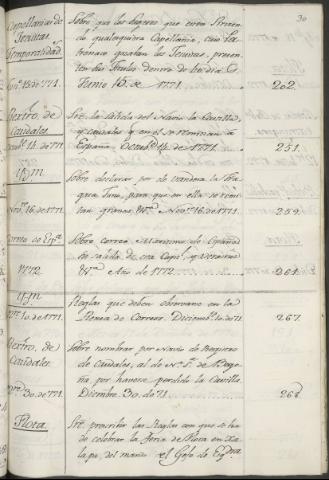 30
Capellanias de Jesuitas Temporalidad.
Sobre que las Sugetos que esten sirviendo
de qualesquiera Capellania, cuio Pa-
tronato gozaban los Jesuitas, presen-
ten sus Titulos dentro de 30 dias
Junio 18 de 1771. 202.
Jun.º 18 de 771.
Rexttro. de Caudales.
Sre. la salida del Navio la Castilla,
y caudales q.e en el se remitian a
España. Decmb.e 14. de 1771. 251.
Decmb.e 14. de 771.
Ydm
Sobre declarar por de vandera la Fra-
gata Juno, para que en ella se remi-
tan granas, &.ª Nov.re 16. de 1771. 252.
Nov.re 16. de 771.
Correo de Esp.ª
Sobre Correo Maritimo de España
su salida de esta Cap.l, y Veracruz
&.ª Año de 1772. 261.
1772.
Ydm
Reglas que deben observarse en la
Renta de Correos. Diciemb.e 10. de 71 267.
D.re 10. de 1771.
Rexttro. de Caudales
Sobre nombrar por Navio de Registro
de Caudales, al de N.ª S.ª de Bego-
ña por haverse perdido la Castilla.
Diciembre. 30. de 71. 268
D.re 30. de 771.
Flota.
Sre. prescribir las Reglas con que se ha
de celebrar la Feria de Flota en Xa-
lapa, del mando el Gefe de Esq.dra